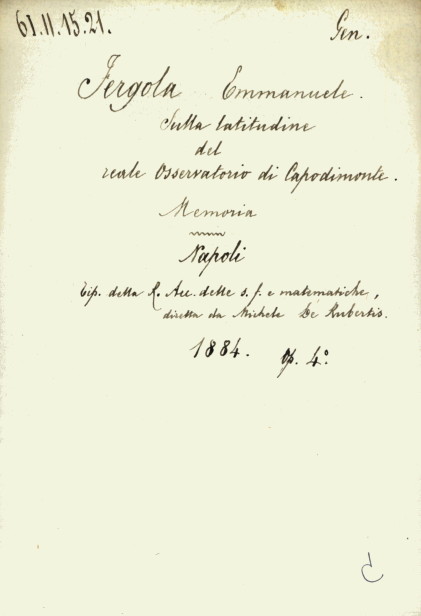 61.11.15.21.
Gen.
Fergola Emmanuele.
Sulla latitudine
del
reale Osservatorio di Capodimonte.
Memoria
Napoli
Tip. della R. Acc. delle s. f. e matematiche,
diretta da Michele De Rubertis.
1884. Op. 4°.